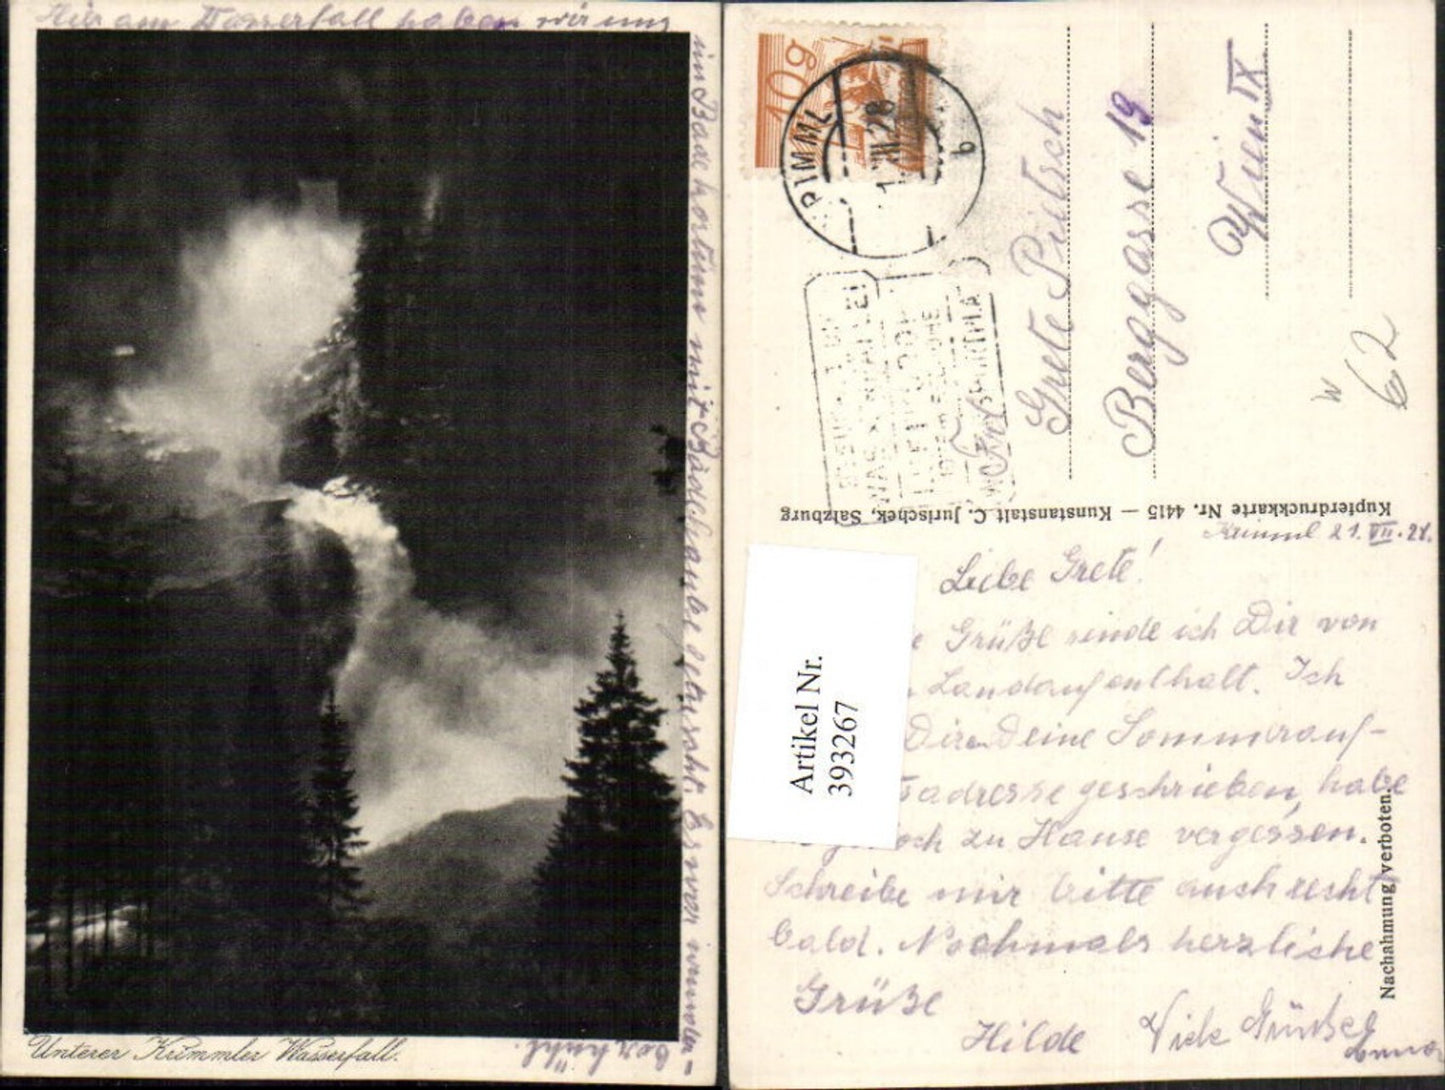 Hier am Wasserfall haben wir uns
im Badekostüm mit Badehaube geduscht. Es war wunder-
bar kühl.
Unterer Krimmler Wasserfall.
10g
KRIMML
1.VIII.28
b
Frl.
Grete Pietsch
Berggasse 19
Wien IX
W
62
Kupferdruckkarte Nr. 4415 — Kunstanstalt C. Jurischek, Salzburg
Krimml 21. VII. 28.
Liebe Grete!
Grüße sende ich Dir von
Landaufenthalt. Ich
Dir Deine Sommerauf-
adresse geschrieben, habe
doch zu Hause vergessen.
Schreibe mir bitte auch recht
bald. Nochmals herzliche
Grüße
Hilde
Viele Grüße
Nachahmung verboten.
Artikel Nr.
393267